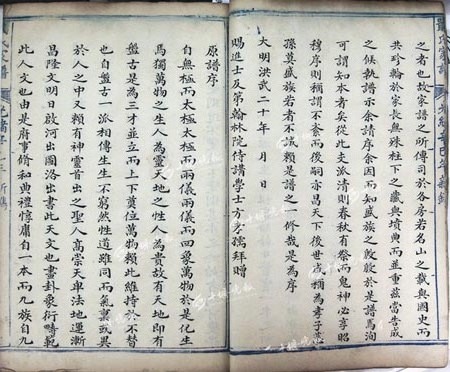 之者也故家譜之所傳司於各房若名山之載與國史而
共珍輪於家長無殊柱下之藏與墳典而並重茲當告成
之候執譜示余請序余因而知盛族之敦敘於是譜焉洵
可謂知本者矣從此支派清則春秋有祭而鬼神必享昭
穆序則稱謂不紊而後嗣亦昌天下後世咸稱為孝子慈
孫莫盛族若者不誠賴是譜之一修哉是為序
大明洪武二十年 月 日
賜進士及第翰林院侍講學士方孝孺拜贈
原譜序
自無極而太極太極而兩儀兩儀而四象萬物於是化生
焉獨萬物之生人為靈天地之性人為貴故有天地即有
盤古是為三才並立而上下奠位萬物賴此維持於不替
也自盤古一派相傳生生不窮然性道雖同而氣稟或異
於人之中又賴有神靈首出之聖人高崇天卑法地運漸
昌隆文明日啟河出圖洛出書此天文也畫卦象衍疇範
此人文也由是府事脩和典禮惇庸自一本而九族自九